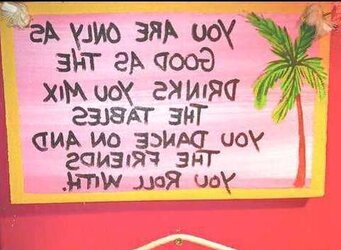 YOU ARE ONLY AS
GOOD AS THE
DRINKS YOU MIX
THE TABLES
YOU DANCE ON AND
THE FRIENDS
YOU ROLL WITH.